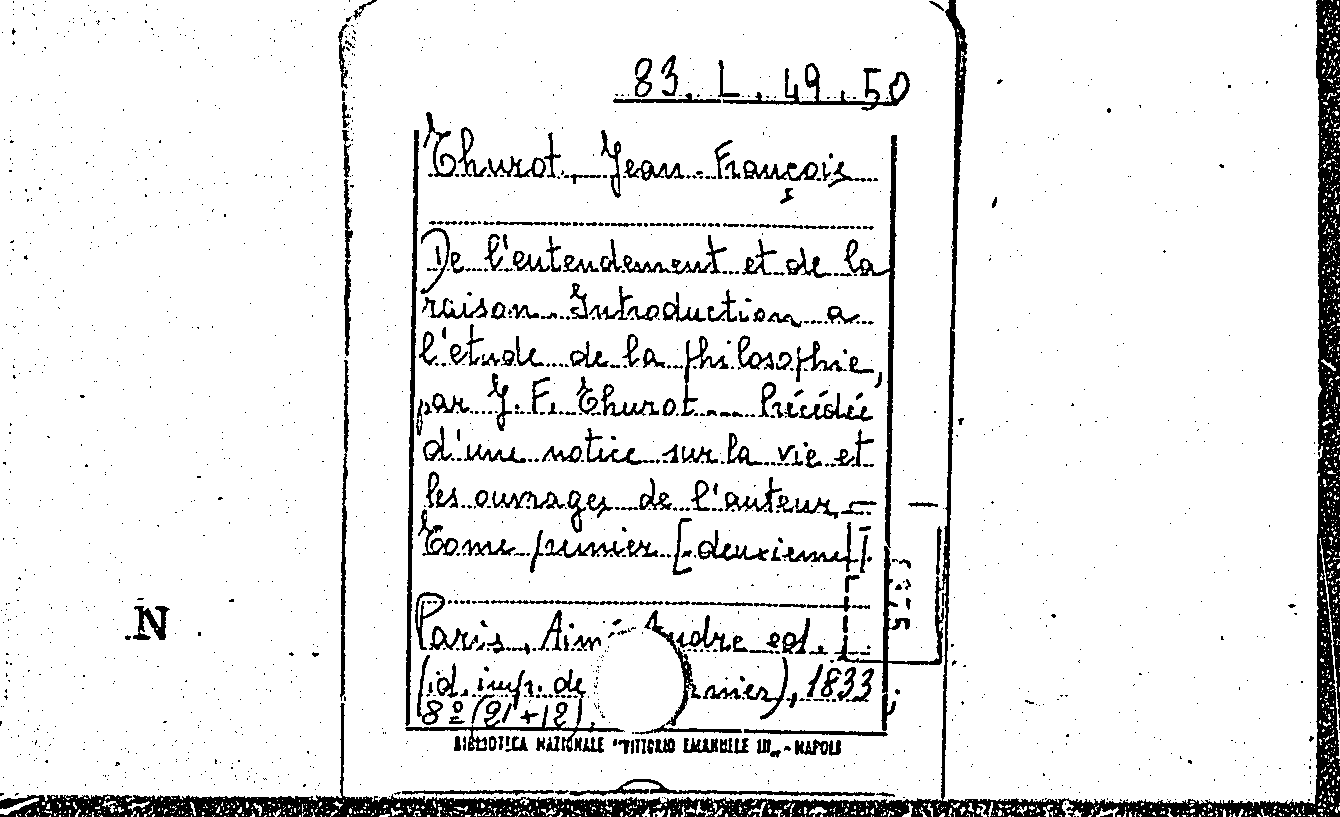 83. L. 49.50
Thurot, Jean-François
De l'entendement et de la
raison. Introduction a
l'etude de la philosophie,
par J. F. Thurot... Précédée
d'une notice sur la vie et
les ouvrages de l'auteur.
Tome premier [-deuxieme].
Paris, Aimé Andre ed.
(id. imp. de), 1833;
8º (21+12).
BIBLIOTECA NAZIONALE "VITTORIO EMANUELE III" - NAPOLI
N